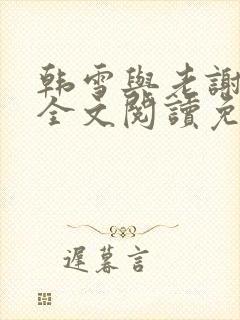 韩雪與老謝
全文閱讀免
遲暮言